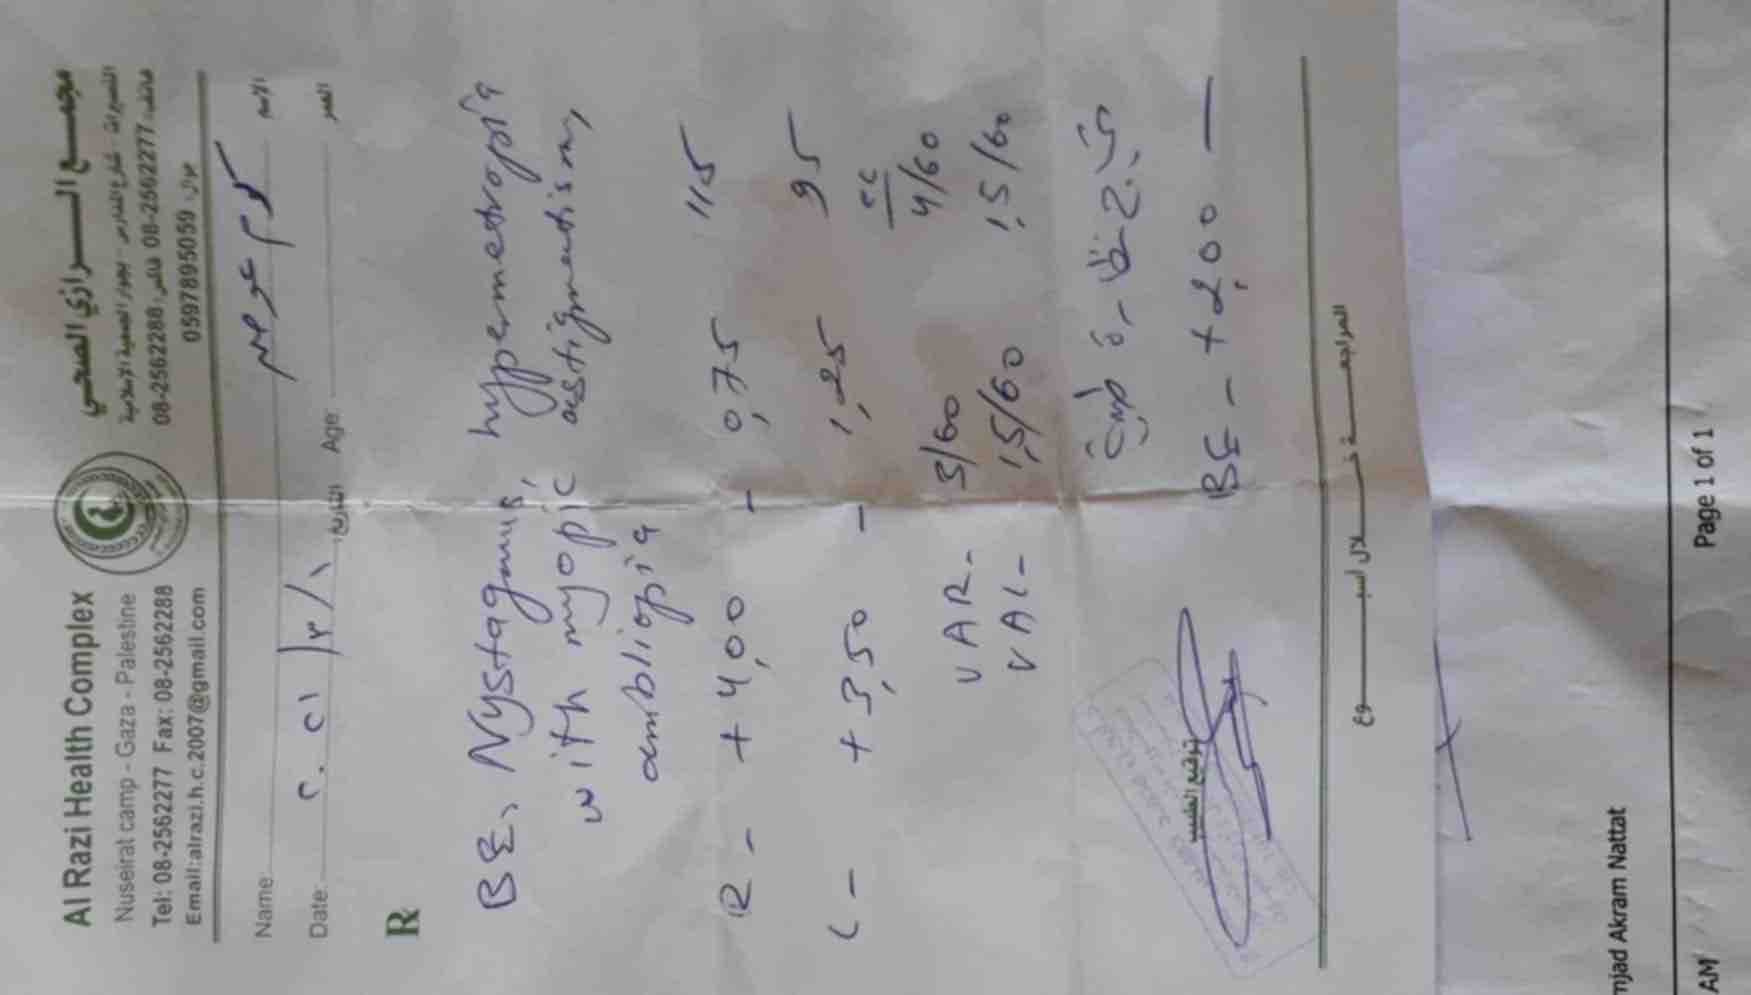 Al Razi Health Complex
Nuseirat camp - Gaza - Palestine
Tel: 08-2562277 Fax: 08-2562288
Email:alrazi.h.c.2007@gmail.com
مجمع الرازي الصحي
النصيرات - شارع
هاتف: 08-2562277 فاكس: 08-2562288
جوال: 0597895059
Name الاسم
Date: ٢٠٢١/٣/١ التاريخ Age العمر
R
BE, Nystagmus, hypermetropia
with myopic astigmatism,
ambliopia
R - +4,00 - 0,75 115
L - +3,50 - 1,25 95
cc
VAR - 3/60 4/60
VAL - 1,5/60 1,5/60
BE - +2,00 —
توقيع الطبيب
المراجعة خلال أسبوع
mjad Akram Nattat
AM Page 1 of 1